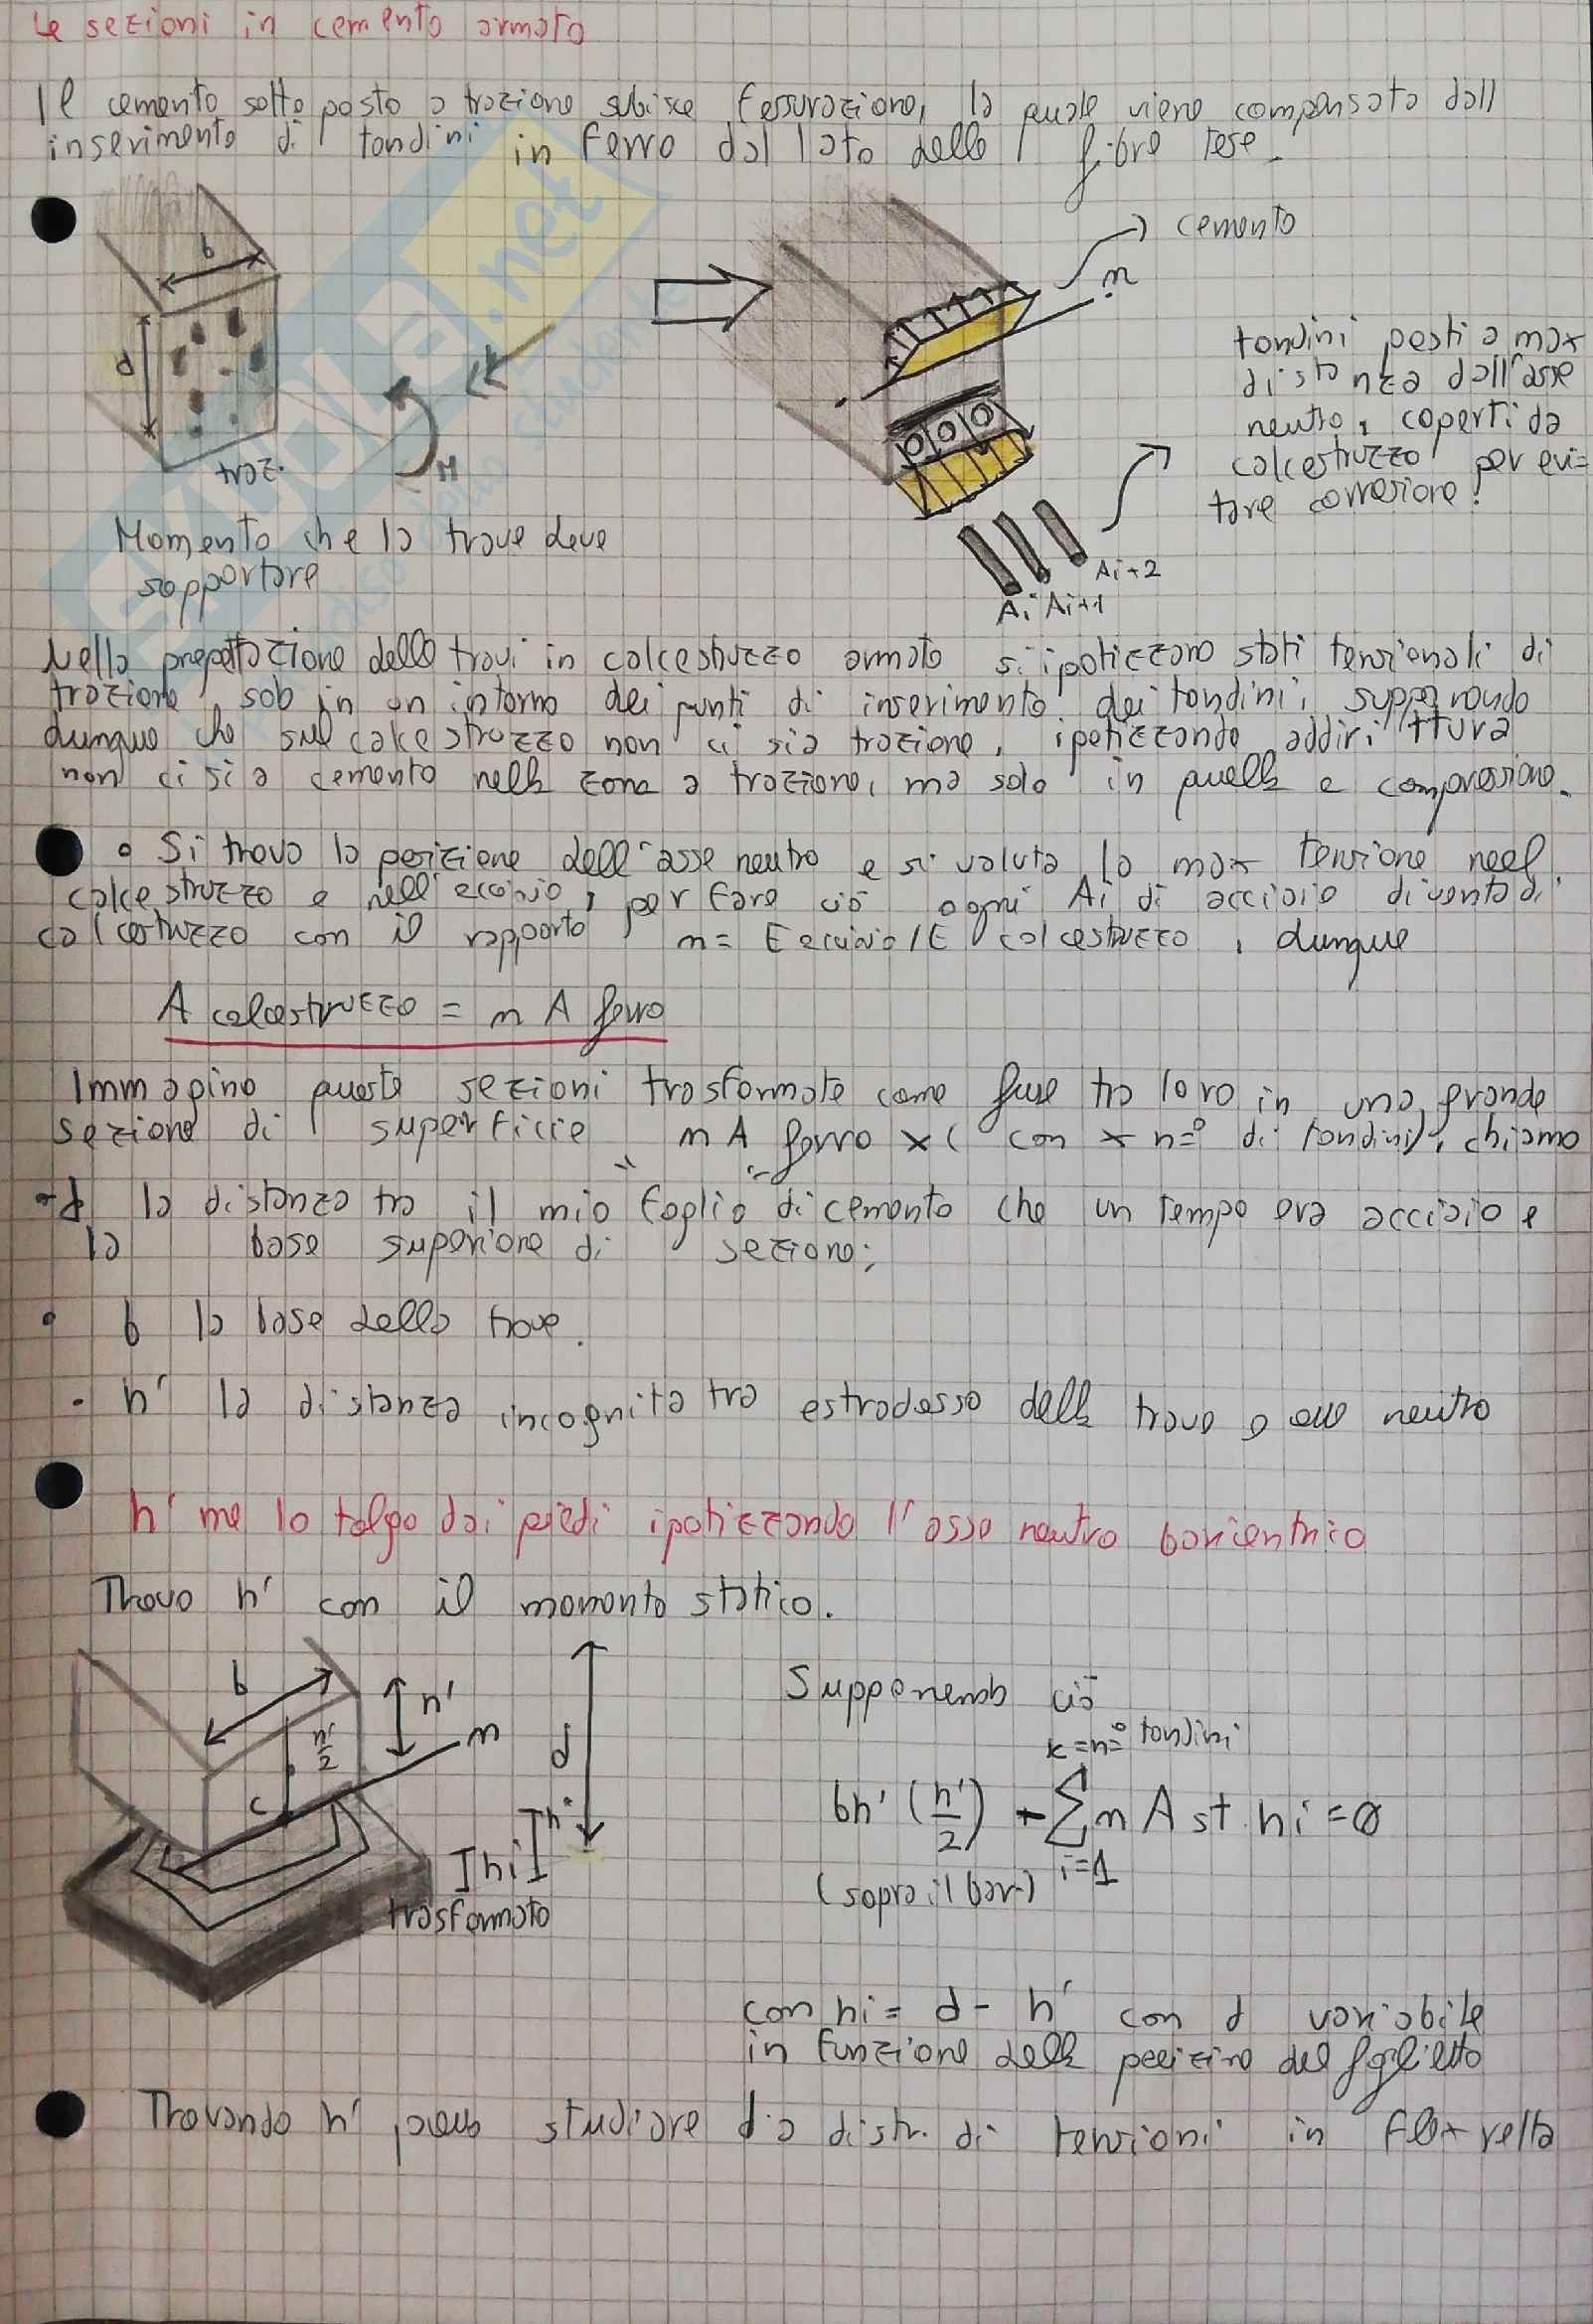 Le sezioni in cemento armato
Il cemento sottoposto a trazione subisce fessurazione, la quale viene compensata dall
inserimento di tondini in ferro dal lato delle fibre tese.
b
d
traz.
M
cemento
n
tondini posti a max
distanza dall'asse
neutro, coperti da
calcestruzzo per evi=
tare corrosione!
Ai Ai+1 Ai+2
Momento che la trave deve
sopportare
Nella progettazione delle travi in calcestruzzo armato si ipotizzano stati tensionali di
trazione, solo in un intorno dei punti di inserimento dei tondini, supponendo
dunque che sul calcestruzzo non ci sia trazione, ipotizzando addirittura
non ci sia cemento nella zona a trazione, ma solo in quella a compressione.
• Si trova la posizione dell'asse neutro e si valuta la max tensione neel
calcestruzzo e nell'acciaio, per fare ciò ogni Ai di acciaio diventa di
calcestruzzo con il rapporto n = E acciaio / E calcestruzzo, dunque
A calcestruzzo = n A ferro
Immagino queste sezioni trasformate come fuse tra loro in una grande
sezione di superficie n A ferro x ( con x n=° di tondini), chiamo
- d la distanza tra il mio "foglio" di cemento che un tempo era acciaio e
la base superiore di sezione;
• b la base della trave.
• h' la distanza incognita tra estradosso della trave e asse neutro
h' me lo tolgo dai piedi ipotizzando l'asse neutro baricentrico
Trovo h' con il momento statico.
b
h'
h'/2
n
d
c
h*
hi
trasformato
Supponendo ciò
k=n=° tondini
bh' (h'/2) - Σ n A st hi = 0
i=1
(sopra il bar.)
con hi = d - h' con d variabile
in funzione della posizione del foglietto
Trovando h' posso studiare la distr. di tensioni in flex retta